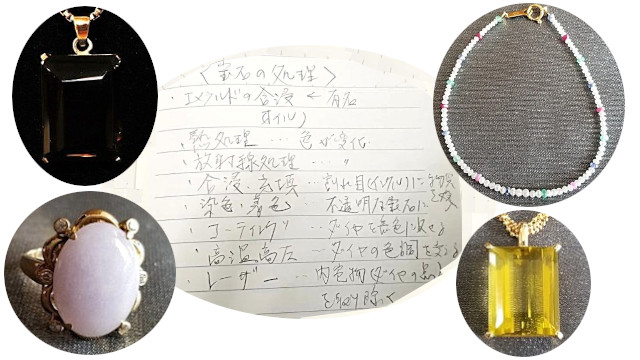 〈宝石の処理〉
・エメラルドの含浸 ← 有名
オイル)
・熱処理 … 色が変化
・放射線処理 … 〃
・含浸・充填 … 割れ目(オイル)に
・染色・着色 … 不透明な宝石に
・コーティング … ダイヤを
・高温高圧 … ダイヤの色調を変える
・レーザー … 内包物(ダイヤの黒
を取り除く